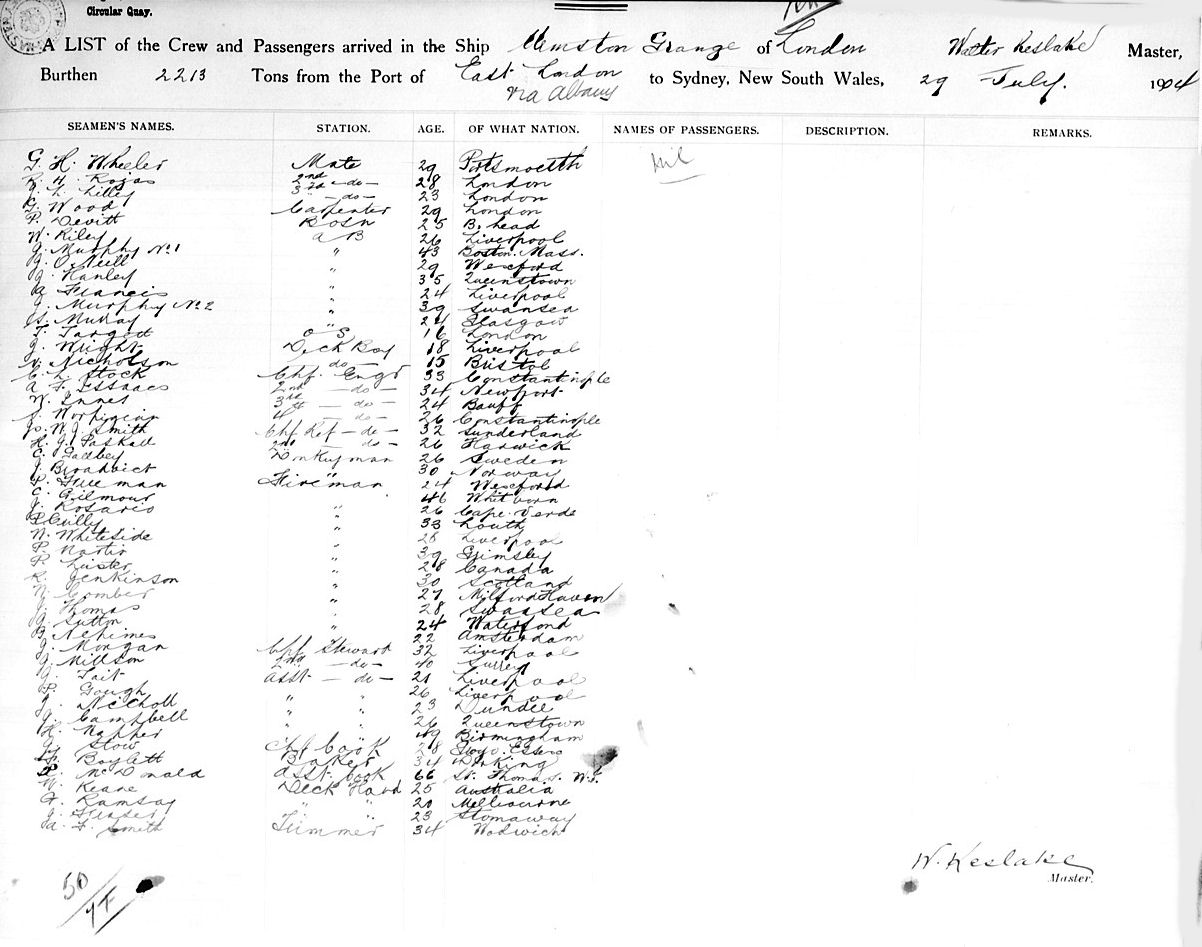 Circular Quay.
A LIST of the Crew and Passengers arrived in the Ship Grange of London Walter Keslake Master,
Burthen 2213 Tons from the Port of East London to Sydney, New South Wales, 29 July. 1904
via Albany
SEAMEN'S NAMES. STATION. AGE. OF WHAT NATION. NAMES OF PASSENGERS. DESCRIPTION. REMARKS.
G. H. Wheeler Mate 29 Portsmouth nil
R. H. Rojas 2nd -do- 28 London
Lilley 3rd -do- 23 London
G. Wood Carpenter 29 London
P. Devitt Bosn 25 B. head
W. Riley A B 26 Liverpool
J. Murphy No. 1 " 43 Boston. Mass.
J. O'Neill " 29 Wexford
J. Hanley " 35 Queenstown
A. Francis " 24 Liverpool
J. Murphy No. 2 " 39 Swansea
Murray " 24 Glasgow
T. Targett O S 16 London
J. Wright Deck Boy 18 Liverpool
Nicholson -do- 15 Bristol
Stock Chf. Engr 33 Constantinople
A. F. Issaacs 2nd -do- 34 Newport
W. Innes 3rd -do- 24 Banff
4th -do- 26 Constantinople
W. J. Smith Chf Ref -do- 32 Sunderland
H. J. Paskall 2nd -do- 26 Harwick
C. Donkeyman 26 Sweden
J. " 30 Norway
P. Freeman Fireman 24 Wexford
C. Gilmour " 46 Whitburn
J. Rosario " 26 Cape Verde
P. Cully " 33 Louth
N. Whiteside " 28 Liverpool
P. " 39 Grimsley
P. Lister " 28 Canada
R. Jenkinson " 30 Scotland
Comber " 27 Milford Haven
J. Thomas " 28 Swansea
J. Sutton " 24 Waterford
" 22 Amsterdam
J. Morgan Chf Steward 32 Liverpool
J. Millson 2nd -do- 40 Surrey
J. Tait asst -do- 21 Liverpool
P. Gough " " 26 Liverpool
J. Nicholl " " 23 Dundee
J. Campbell " " 26 Queenstown
H. Napher " " 49 Birmingham
Stow Chf Cook 28 Essex
Boylett Baker 34 Dorking
McDonald asst. Cook 66 St. Thomas. W.I.
W. Keane Deck Hand 25 Australia
Ramsay " " 20 Melbourne
J. Fraser " " 23 Stornaway
A. F. Smith Trimmer 34 Woolwich
W. Keslake
Master.
50